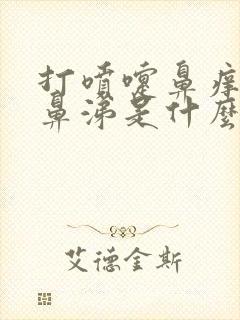 打噴嚏鼻痒
鼻涕是什麼
艾德金斯